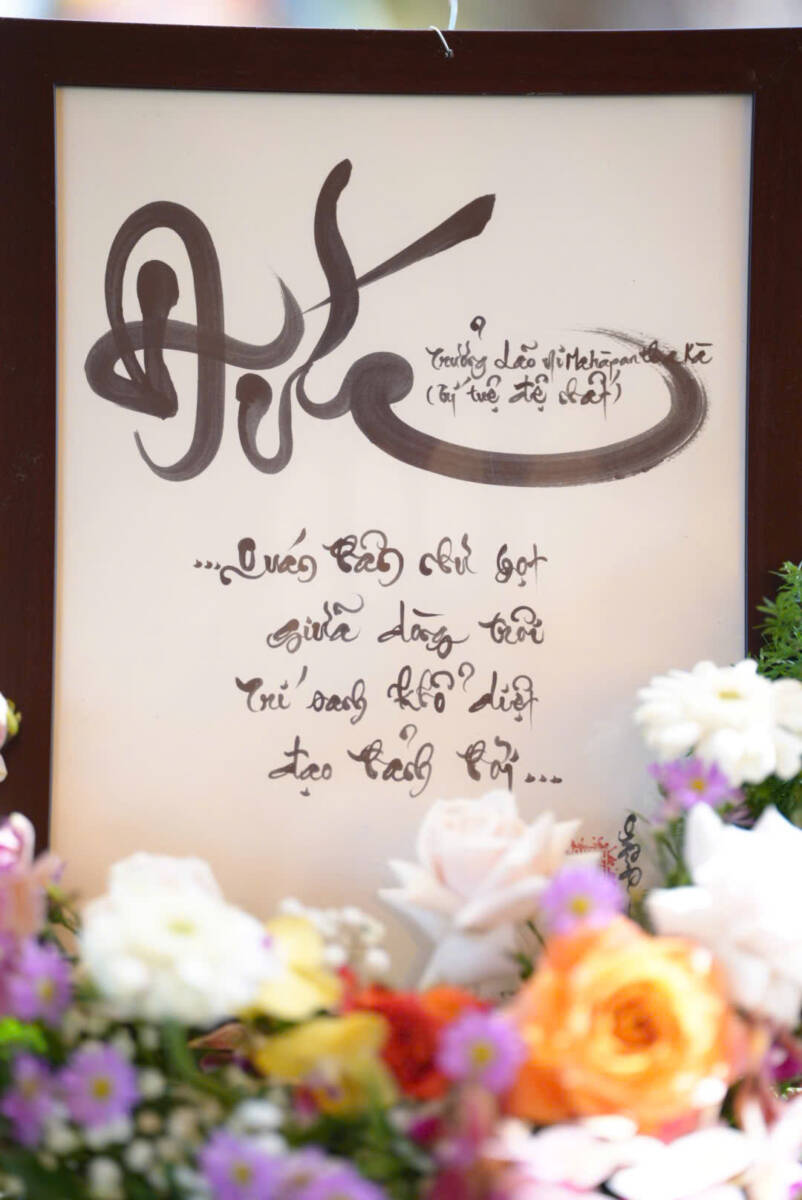 Trưởng Lão Mahāpanthakā
(Trí tuệ đệ nhất)
...Quán thân như bọt
giữa dòng trôi
Trí sanh khổ diệt
đạo thảnh thơi...